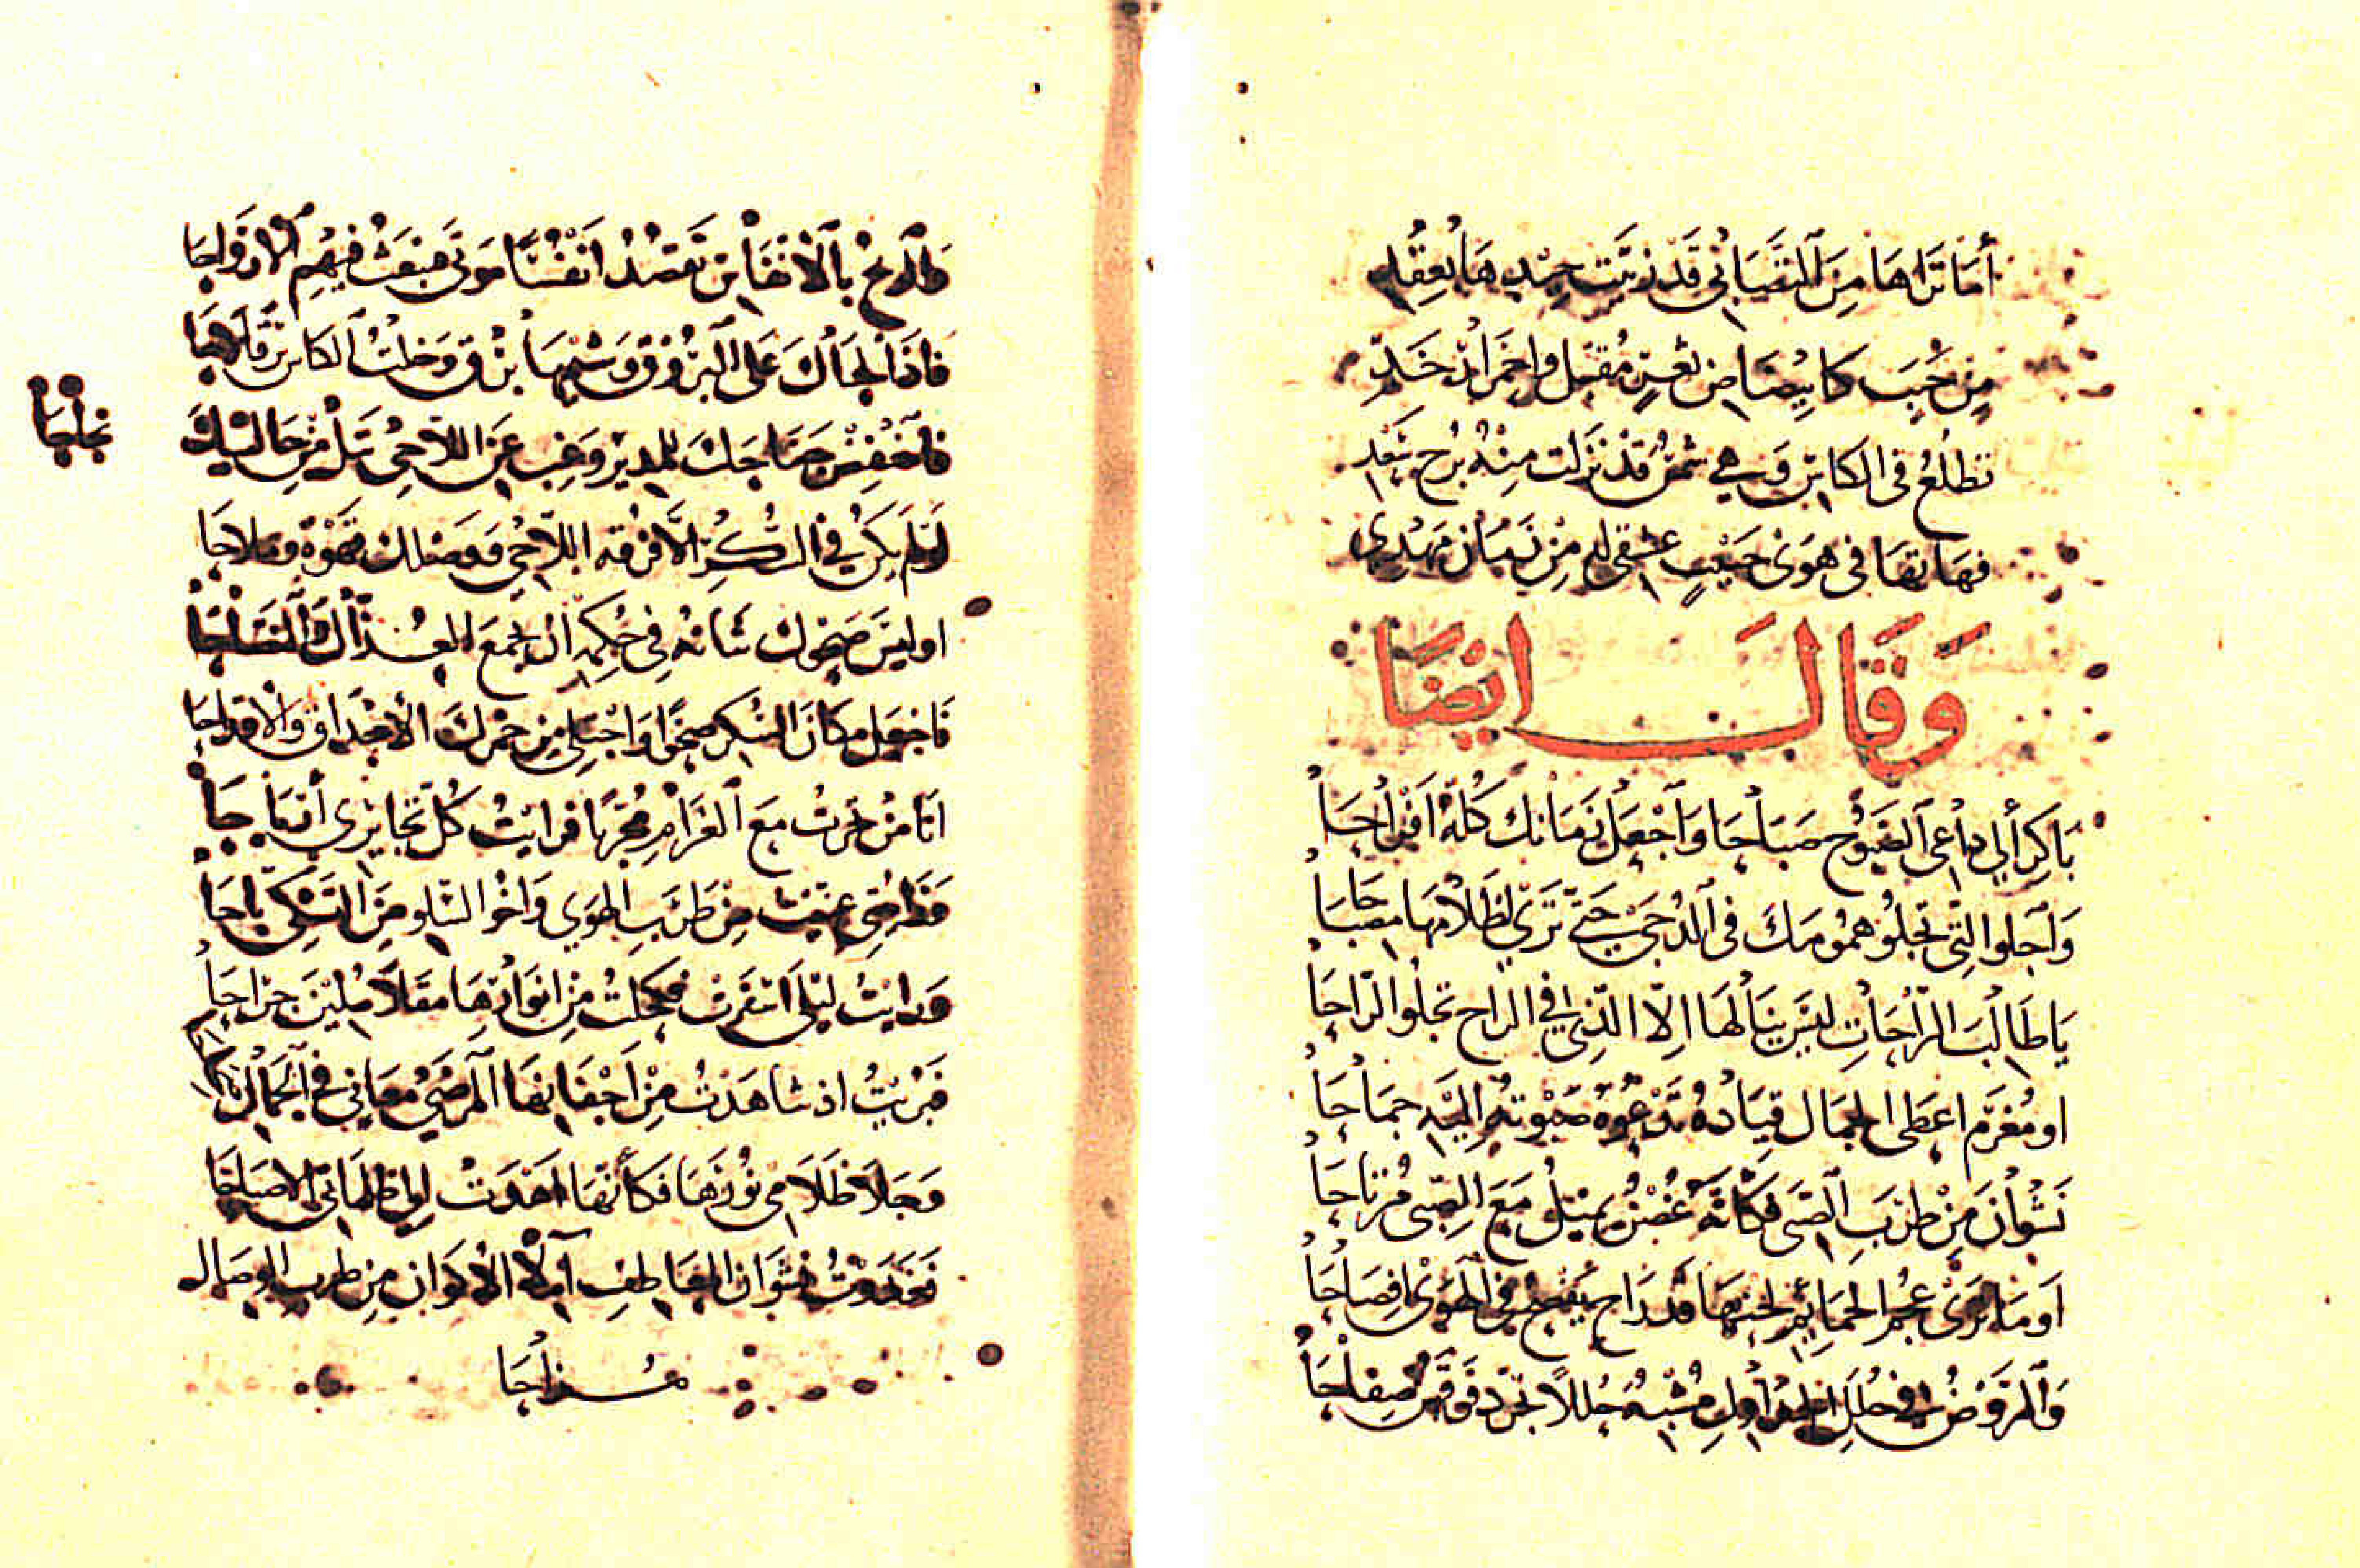 أَمَا تَرَاهَا مِنَ التَّصَابِي قَدْ زَيَّنَتْ جِيدَهَا بِعِقْدِ
مِنْ حَبَبٍ كَابْيِضَاضِ ثَغْرٍ مُقَبَّلٍ وَاحْمِرَارِ خَدِّ
تَطْلُعُ فِي الكَاسِ وَهِيَ شَمْسٌ قَدْ نَزَلَتْ مِنْهُ بُرْجَ سَعْدِ
فَهَاتِهَا فِي هَوَى حَبِيبٍ عِشْقِي لَهُ مِنْ زَمَانِ مَهْدِي
وَقَالَ ايضًا
بَاكِرْ أَلِي دَاعِي الصَّبُوحِ صَبَاحَا وَاجْعَلْ زَمَانَكَ كُلَّهُ أَفْرَاحَا
وَاجْلُوا الَّتِي تَجْلُو هُمُومَكَ فِي الدُّجَى حَتَّى تَرَى لِظَلَامِهَا مِصْبَاحَا
يَا طَالِبَ الرَّاحَاتِ لَيْسَ يَنَالُهَا إِلَّا الَّذِي فِي الرَّاحِ تَجْلُو الرَّاحَا
او مُغْرَمٌ اعْطَى الجَمَالَ قِيَادَهُ تَدْعُوهُ صَبْوَتُهُ إِلَيْهِ جِمَاحَا
نَشْوَانَ مِنْ طَرَبِ الصِّبَى فَكَأَنَّهُ غُصْنٌ يَمِيلُ مَعَ الصَّبَى مُرْتَاحَا
اوَ مَا تَرَى عُجْمَ الحَمَائِمِ لَحْنُهَا قَدْ رَاحَ يُفْصِحُ فِي الهَوَى افْصَاحَا
وَالرَّوْضُ فِي حُلَلِ الجَدَاوِلِ مُشْبِهٌ حُلَلًا تُجَرِّدُ فَوْقَهُنَّ صِفَاحَا
وَالرِّيحُ بِالأَنْفَاسِ تَقْصُدُ أَنْفُسًا مَوْتَى فَتَبْعَثُ فِيهِمُ الأَرْوَاحَا
فَاذَا لَحَاكَ عَلَى البُرُوقِ وَشَيْمِهَا بَرْقٌ وَخِلْتَ الكَاسَ
فَاخْفِضْ جَنَاحَكَ لِلْمُدِيرِ وَغِبْ عَنِ اللَّاحِي تَنَلْ مِنْ حَالَتَيْكَ
نَجَاحَا
لَوْ لَمْ يَكُنْ فِي السُّكْرِ الَّا فُرْقَةُ اللَّاحِي وَوَصْلُكَ قَهْوَةً وَمِلَاحَا
اوَ لَيْسَ صَحْوُكَ شَانُهُ فِي حُكْمِهِ ان يَجْمَعَ العُذَّالَ وَالنُّصَّاحَا
فَاجْعَلْ مَكَانَ السُّكْرِ صَحْوًا وَاجْتَلِي مِنْ خَمْرِكَ الأَحْدَاقَ وَالأَقْدَاحَا
انَا مُنْ جَرَيْتُ مَعَ الغَرَامِ مُجَرِّبًا فَرَايْتُ كُلَّ تَجَارِبِي أَرْبَاحَا
وَرَايْتُ لَيْلَى اسْفَرَتْ فَكَحَلْتُ مِنْ انْوَارِهَا مُقَلًا مُلِينَ جِرَاحَا
فَبَرِيتُ اذ شَاهَدْتُ مِنْ اجْفَانِهَا المَرْضَى مَعَانِي فِي الجَمَالِ
وَجَلَا ظَلَامِي نُورُهَا فَكَأَنَّهَا اهْدَتْ الَى ظَلْمَائِيَ الاصْبَاحَا
فَغَدَوْتُ نَشْوَانَ المَعَاطِفِ آمِلًا الأَكْوَانَ مِنْ طَرَبِ الوِصَالِ
مُرَاحَا